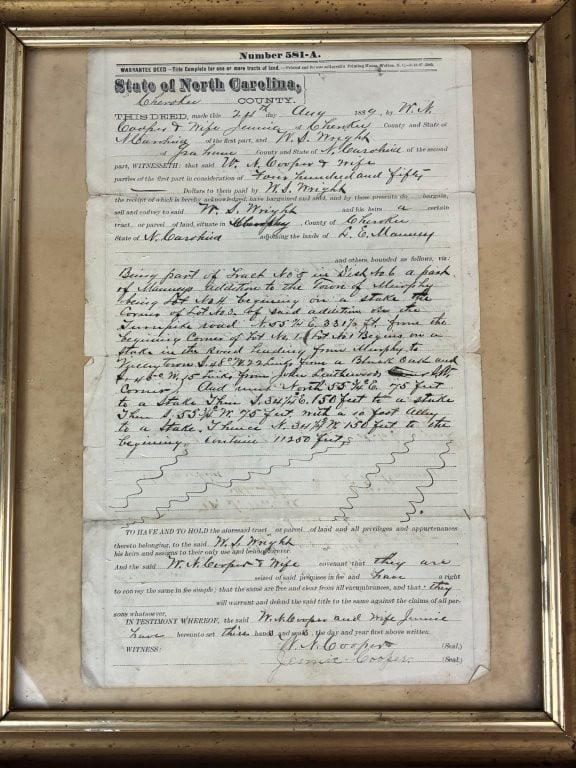 Number 581-A.
WARRANTEE DEED—Title Complete for one or more tracts of land.
State of North Carolina,
Cherokee COUNTY.
THIS DEED, made this day Aug 1889, by W. N.
Cooper & Wife Jennie of Cherokee County and State of
N Carolina of the first part, and W. S. Wright
of Graham County and State of N. Carolina of the second
part, WITNESSETH: that said W. N. Cooper & Wife
parties of the first part in consideration of Four hundred and fifty
Dollars to them paid by W. S. Wright
the receipt of which is hereby acknowledged, have bargained and sold, and by these presents do bargain,
sell and convey to said W. S. Wright and his heirs a certain
tract or parcel of land, situate in County of Cherokee
State of N. Carolina adjoining the lands of L. E. Mauney
and others, bounded as follows, viz:
Being part of Tract No 5 in Dist No 6 a part
of Mauneys addition to the Town of Murphy
being Lot No 4 beginning on a stake the
Corner of Lot No 3 of said addition on the
Turnpike road N. 55¾ E. 331½ ft. from the
beginning Corner of Lot No. 1 Lot No 1 Begins on a
stake in the Road leading from Murphy to
S 45° W. 22 links from a Black Oak and
W. 15 links from John Leatherwoods
Corner, And runs North 55¾ E 75 feet
to a stake Then S. 34¼ E. 150 feet to a stake
Then S. 55¾ W. 75 feet, with a 10 foot Alley
to a stake. Thence N. 34¼ W. 150 feet to the
begining, Containe 11250 feet,
TO HAVE AND TO HOLD the aforesaid tract or parcel of land and all privileges and appurtenances
thereto belonging, to the said W. S. Wright
his heirs and assigns to their only use and behoof forever.
And the said W. N. Cooper & Wife covenant that they are
seized of said premises in fee and have a right
to convey the same in fee simple; that the same are free and clear from all encumbrances, and that they
will warrant and defend the said title to the same against the claims of all per-
sons whatsoever.
IN TESTIMONY WHEREOF, the said W. N. Cooper and Wife Jennie
have hereunto set their hands and seals, the day and year first above written.
WITNESS: W. N. Cooper (Seal)
Jennie Cooper (Seal)